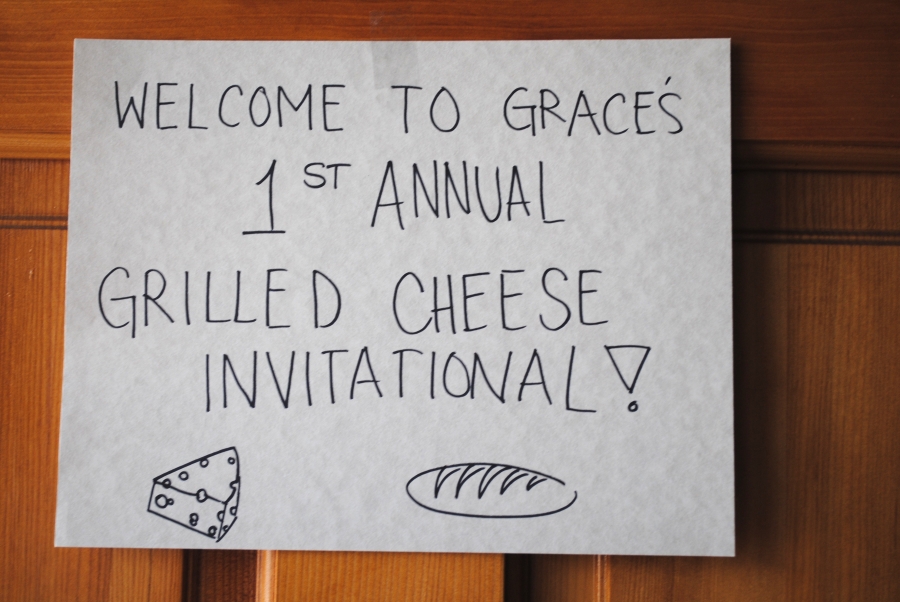 WELCOME TO GRACE'S
1ST ANNUAL
GRILLED CHEESE
INVITATIONAL!